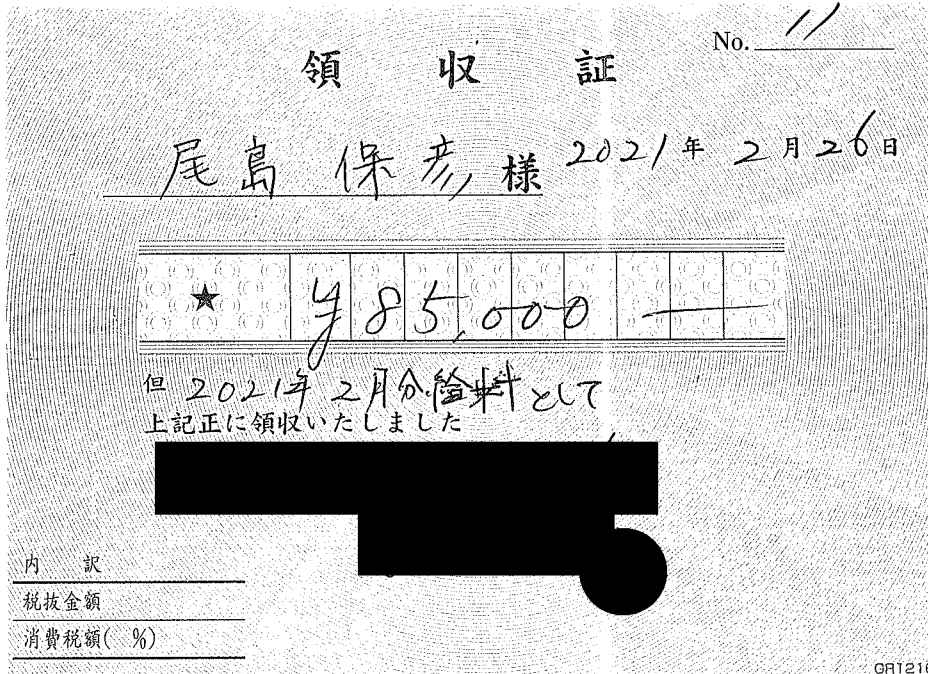 No. 11
領収証
尾島 保彦 様 2021年 2月 26日
★ ¥85,000 —
但 2021年 2月分給料として
上記正に領収いたしました
内 訳
税抜金額
消費税額( %)
GR1216